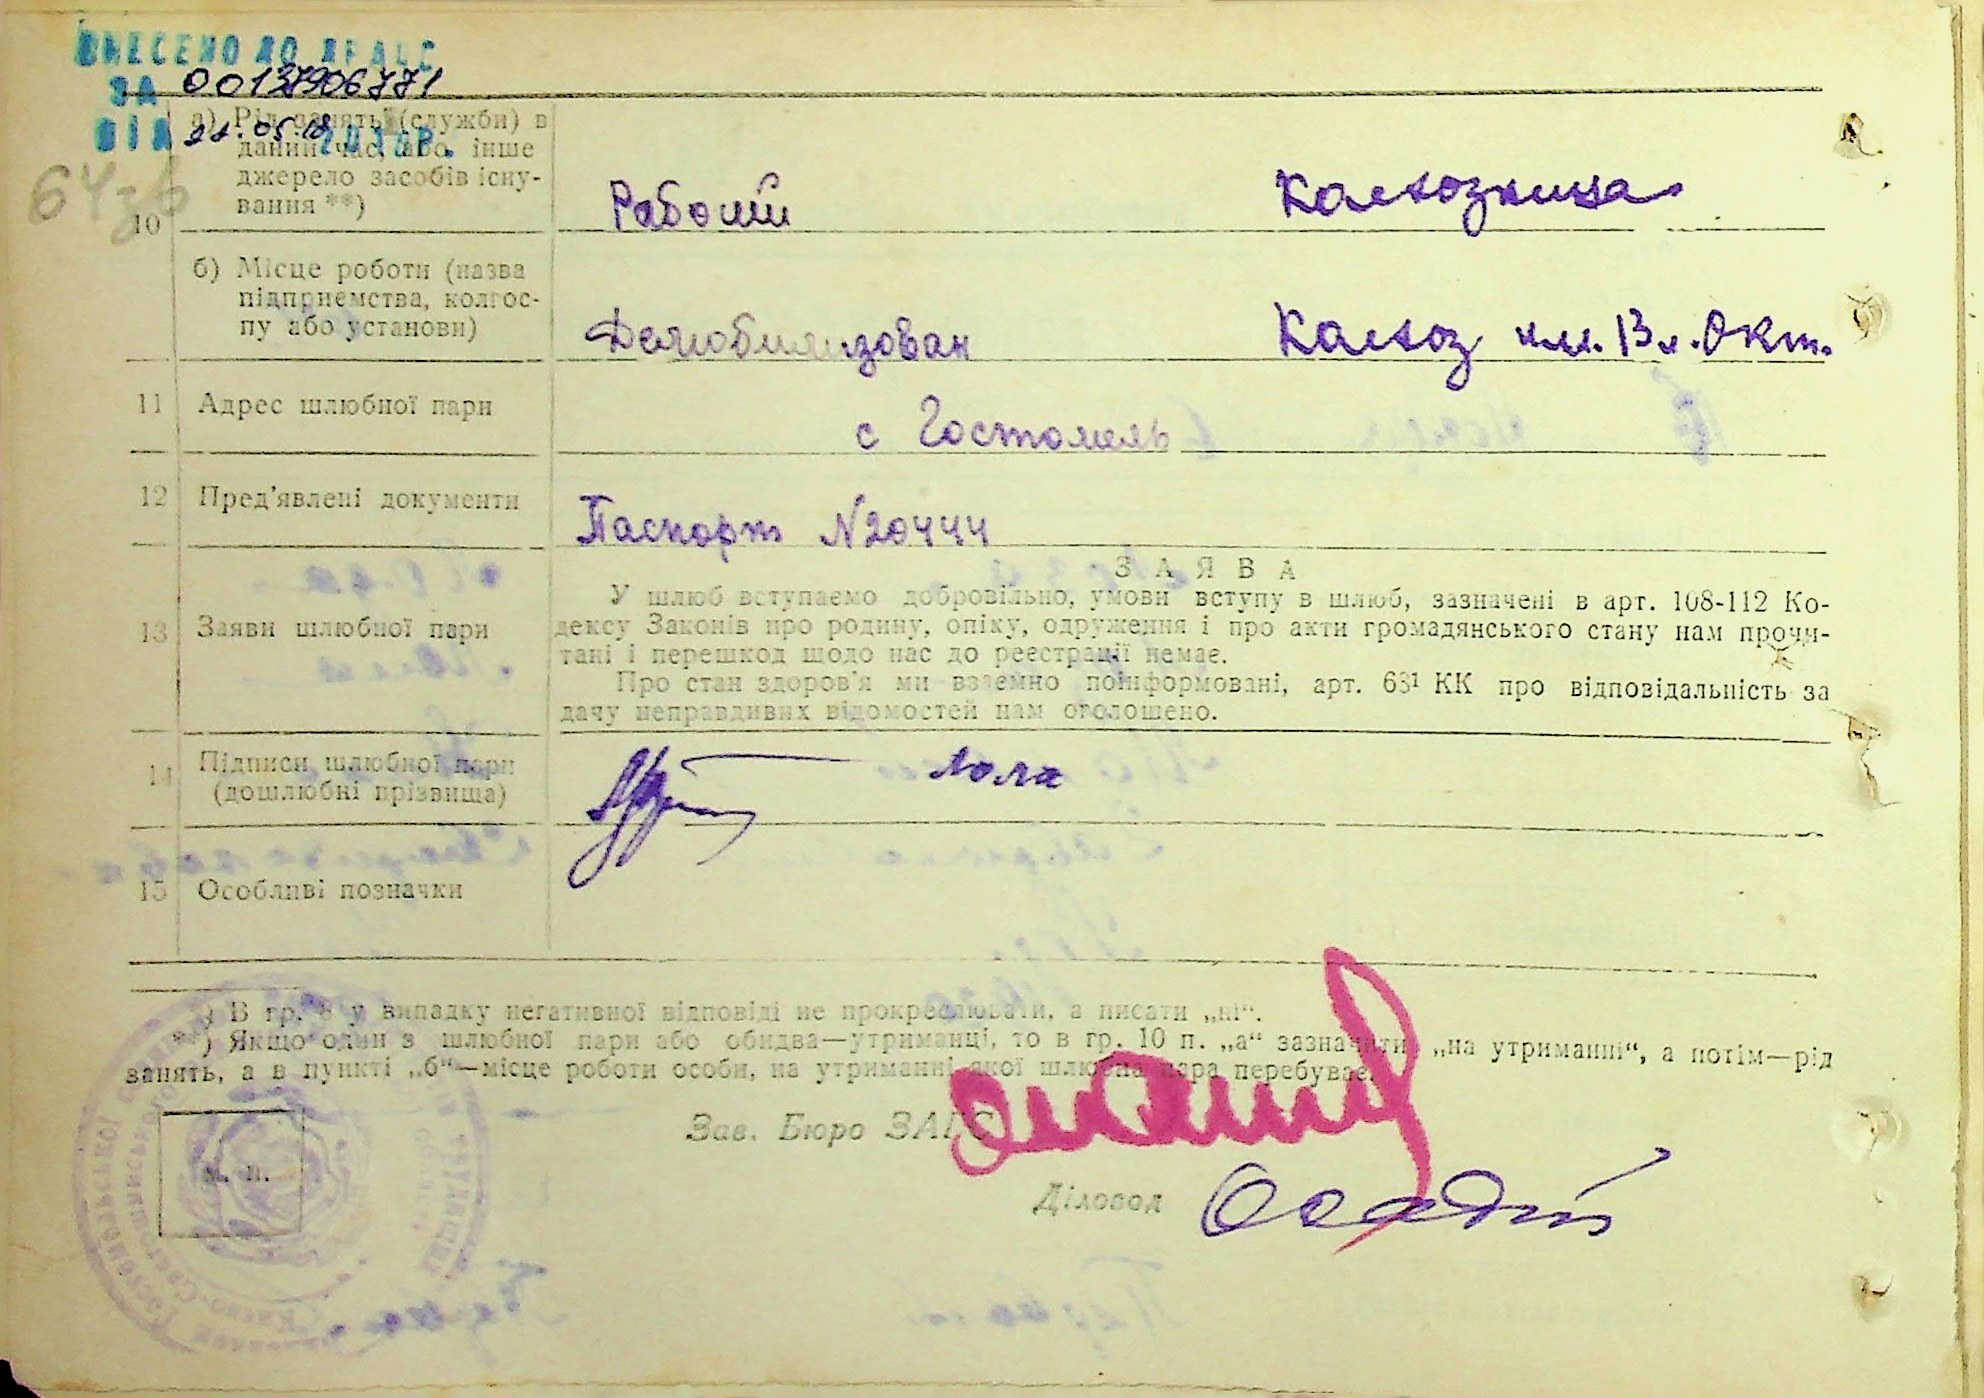 ВНЕСЕНО ДО ДРАЦС
ЗА 00137906771
ВІД 21.05.18 201 Р.
64зв
10
а) Рід занять (служби) в
даний час, або інше
джерело засобів існу-
вання **)
Рабочий
Колхозница
б) Місце роботи (назва
підприємства, колгос-
пу або установи)
Демобилизован
Колхоз им. 13 л. Окт.
11 Адрес шлюбної пари
с Гостомель
12 Пред'явлені документи
Паспорт N20444
13 Заяви шлюбної пари
ЗАЯВА
У шлюб вступаємо добровільно, умови вступу в шлюб, зазначені в арт. 108-112 Ко-
дексу Законів про родину, опіку, одруження і про акти громадянського стану нам прочи-
тані і перешкод щодо нас до реєстрації немає.
Про стан здоров'я ми взаємно поінформовані, арт. 63¹ КК про відповідальність за
дачу неправдивих відомостей нам оголошено.
14 Підписи шлюбної пари
(дошлюбні прізвища)
15 Особливі позначки
*) В гр. 8 у випадку негативної відповіді не прокреслювати, а писати „ні“.
**) Якщо один з шлюбної пари або обидва—утриманці, то в гр. 10 п. „а“ зазначити „на утриманні“, а потім—рід
занять, а в пункті „б“—місце роботи особи, на утриманні якої шлюбна пара перебуває.
Зав. Бюро ЗАГС
м. п.
Діловод